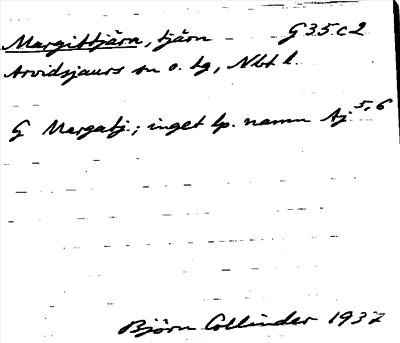 Margittjärn, tjärn G 35 c 2
Arvidsjaurs sn o. tg, Nbt l.
G Margatj.; inget lp. namn Aj 5, 6
Björn Collinder 1937